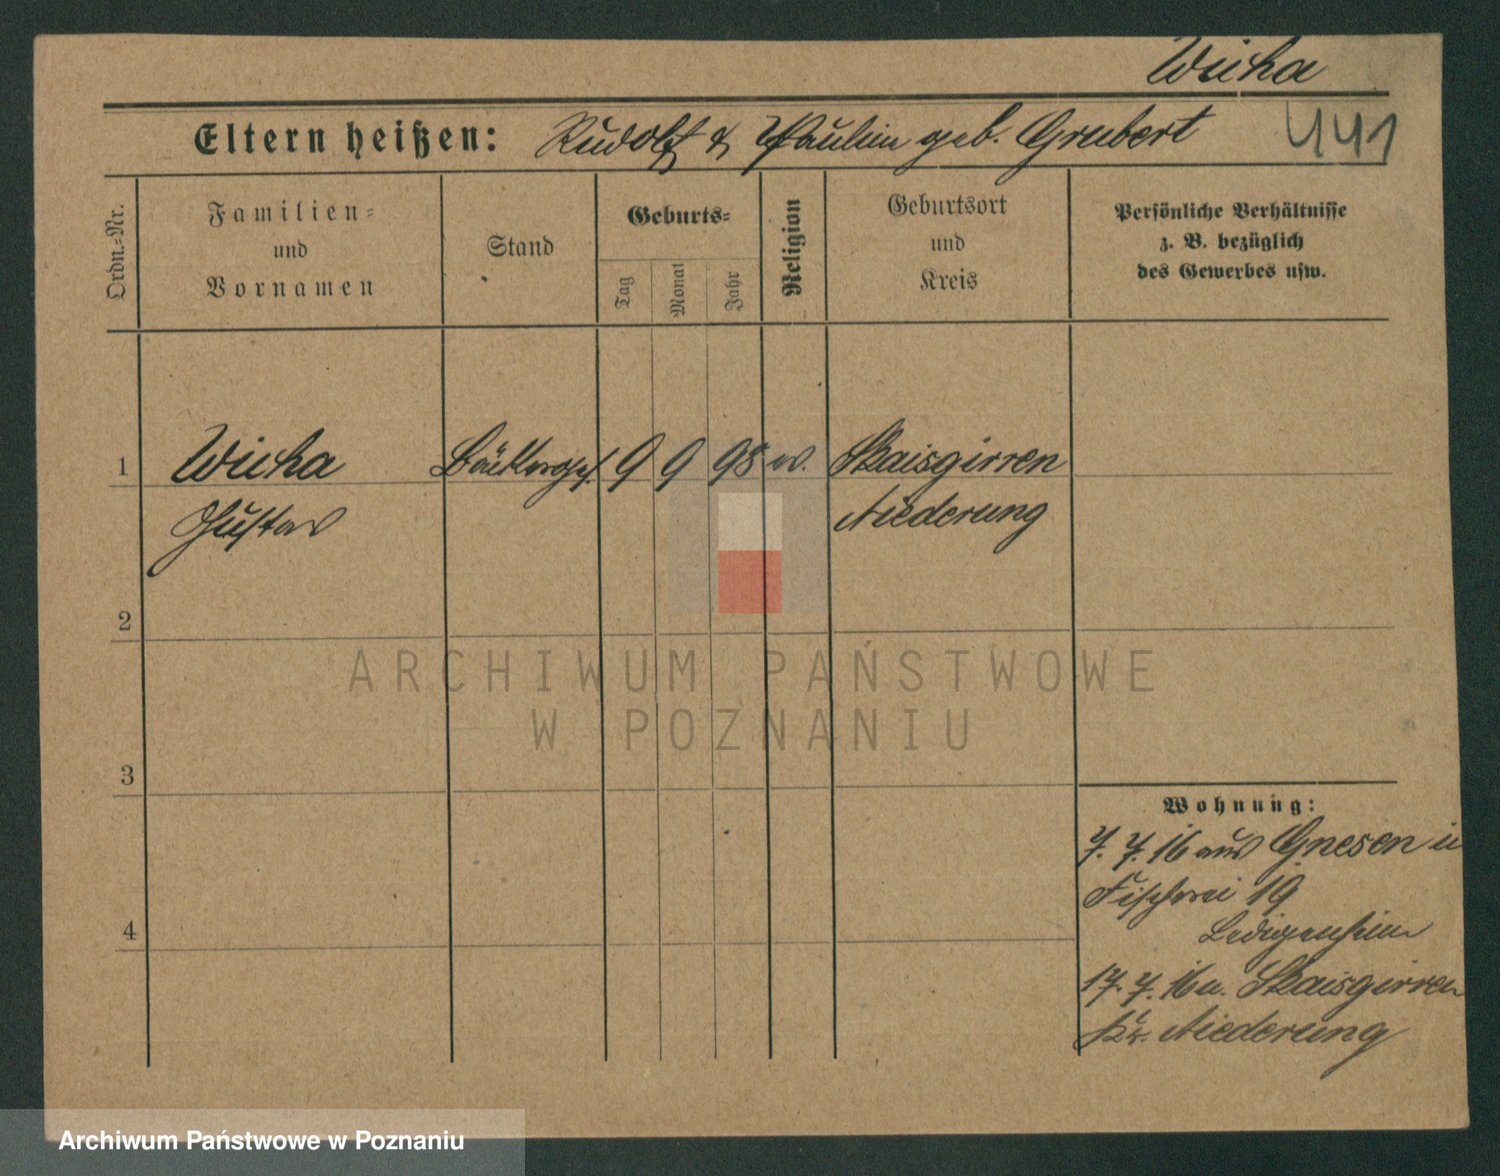 Wicha
Eltern heißen: Rudolf & Paulin geb. Grubert
441
Ordn.-Nr.
Familien-
und
Vornamen
Stand
Geburts-
Tag
Monat
Jahr
Religion
Geburtsort
und
Kreis
Persönliche Verhältnisse
z. B. bezüglich
des Gewerbes usw.
1 Wicha Bäckerges. 9 9 98 ev. Skaisgirren
Gustav Niederung
2
3
4
Wohnung:
7. 7. 16 aus Gnesen in
Fischerei 19
Ledigenheim
17. 7. 16 n. Skaisgirren
Kr. Niederung
ARCHIWUM PAŃSTWOWE
W POZNANIU
Archiwum Państwowe w Poznaniu